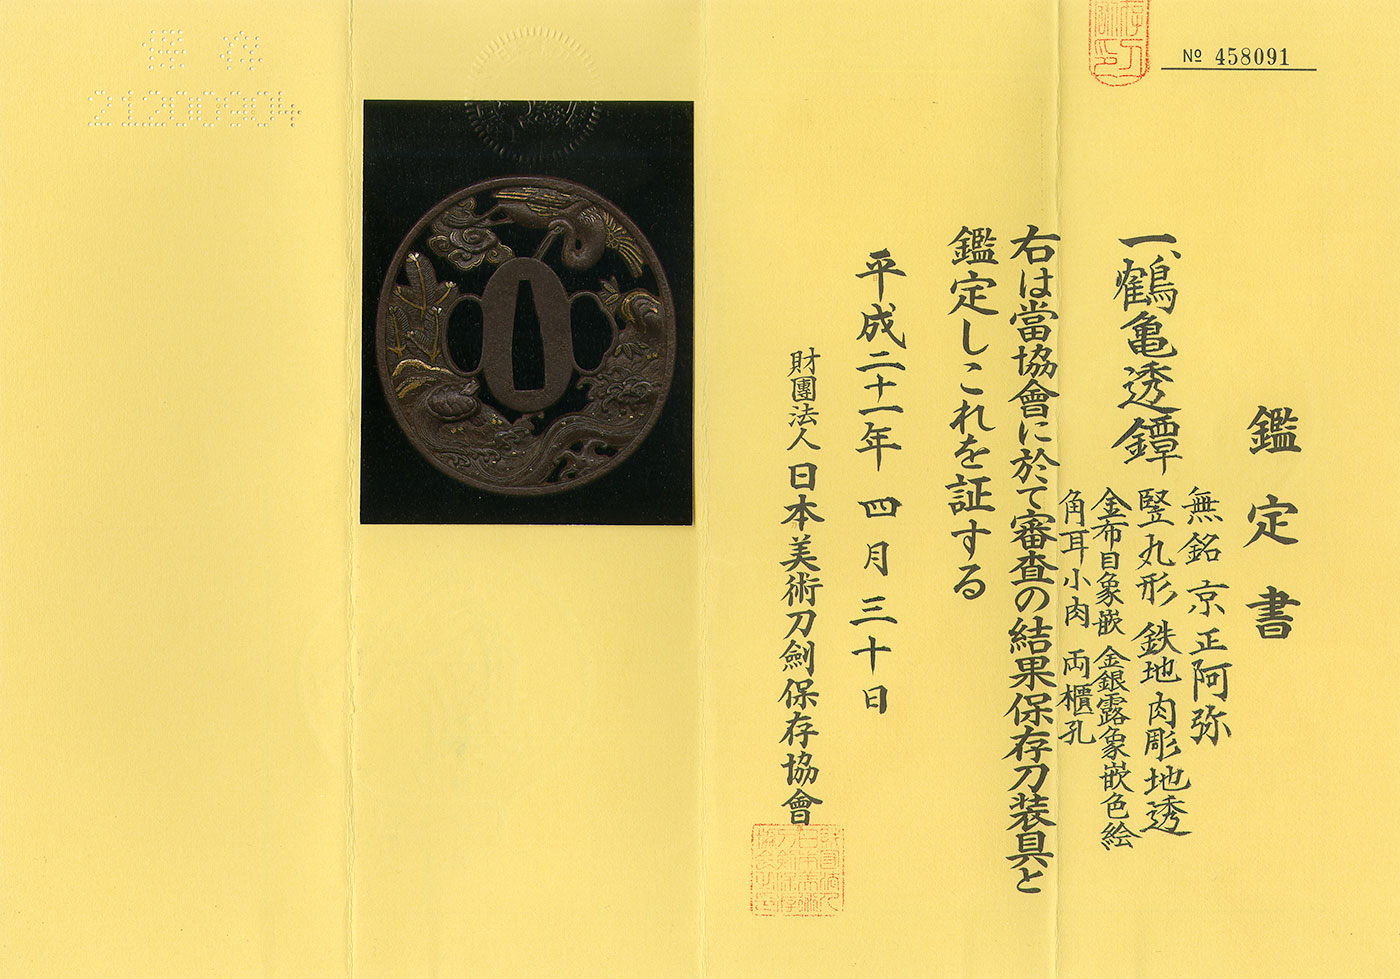 № 458091
鑑定書
一、鶴亀透鐔
無銘 京正阿弥
竪丸形 鉄地 肉彫地透
金布目象嵌 金銀露象嵌色絵
角耳小肉 両櫃孔
右は當協會に於て審査の結果保存刀装具と
鑑定しこれを証する
平成二十一年 四月 三十日
財團法人 日本美術刀劍保存協會
保存
21200904